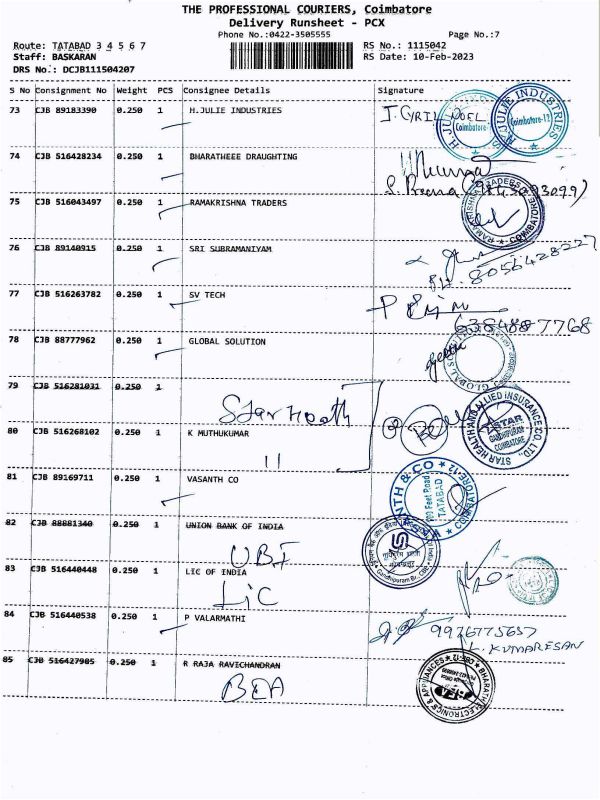 THE PROFESSIONAL COURIERS, Coimbatore
Delivery Runsheet - PCX
Phone No.:0422-3505555 Page No.:7
Route: TATABAD 3 4 5 6 7 RS No.: 1115042
Staff: BASKARAN RS Date: 10-Feb-2023
DRS No.: DCJB111504207
S No Consignment No Weight PCS Consignee Details Signature
73 CJB 89183390 0.250 1 H.JULIE INDUSTRIES J. CYRIL NOEL
H.JULIE INDUSTRIES Coimbatore-12
74 CJB 516428234 0.250 1 BHARATHEEE DRAUGHTING
75 CJB 516043497 0.250 1 RAMAKRISHNA TRADERS
RAMAKRISHNA TRADERS COIMBATORE
76 CJB 89140915 0.250 1 SRI SUBRAMANIYAM
PH. 8056428227
77 CJB 516263782 0.250 1 SV TECH
6384887768
78 CJB 88777962 0.250 1 GLOBAL SOLUTION
79 CJB 516281031 0.250 1
Star Health
STAR HEALTH AND ALLIED INSURANCE CO. LTD.
STAR
GANDHIPURAM
COIMBATORE
80 CJB 516268102 0.250 1 K MUTHUKUMAR
11
81 CJB 89169711 0.250 1 VASANTH CO
100 Feet Road
TATABAD
82 CJB 88881340 0.250 1 UNION BANK OF INDIA
UBI
83 CJB 516440448 0.250 1 LIC OF INDIA
LIC
84 CJB 516440538 0.250 1 P VALARMATHI
9976775657
L. KUMARESAN
85 CJB 516427985 0.250 1 R RAJA RAVICHANDRAN
BEA
BHARATH ELECTRONICS & APPLIANCES